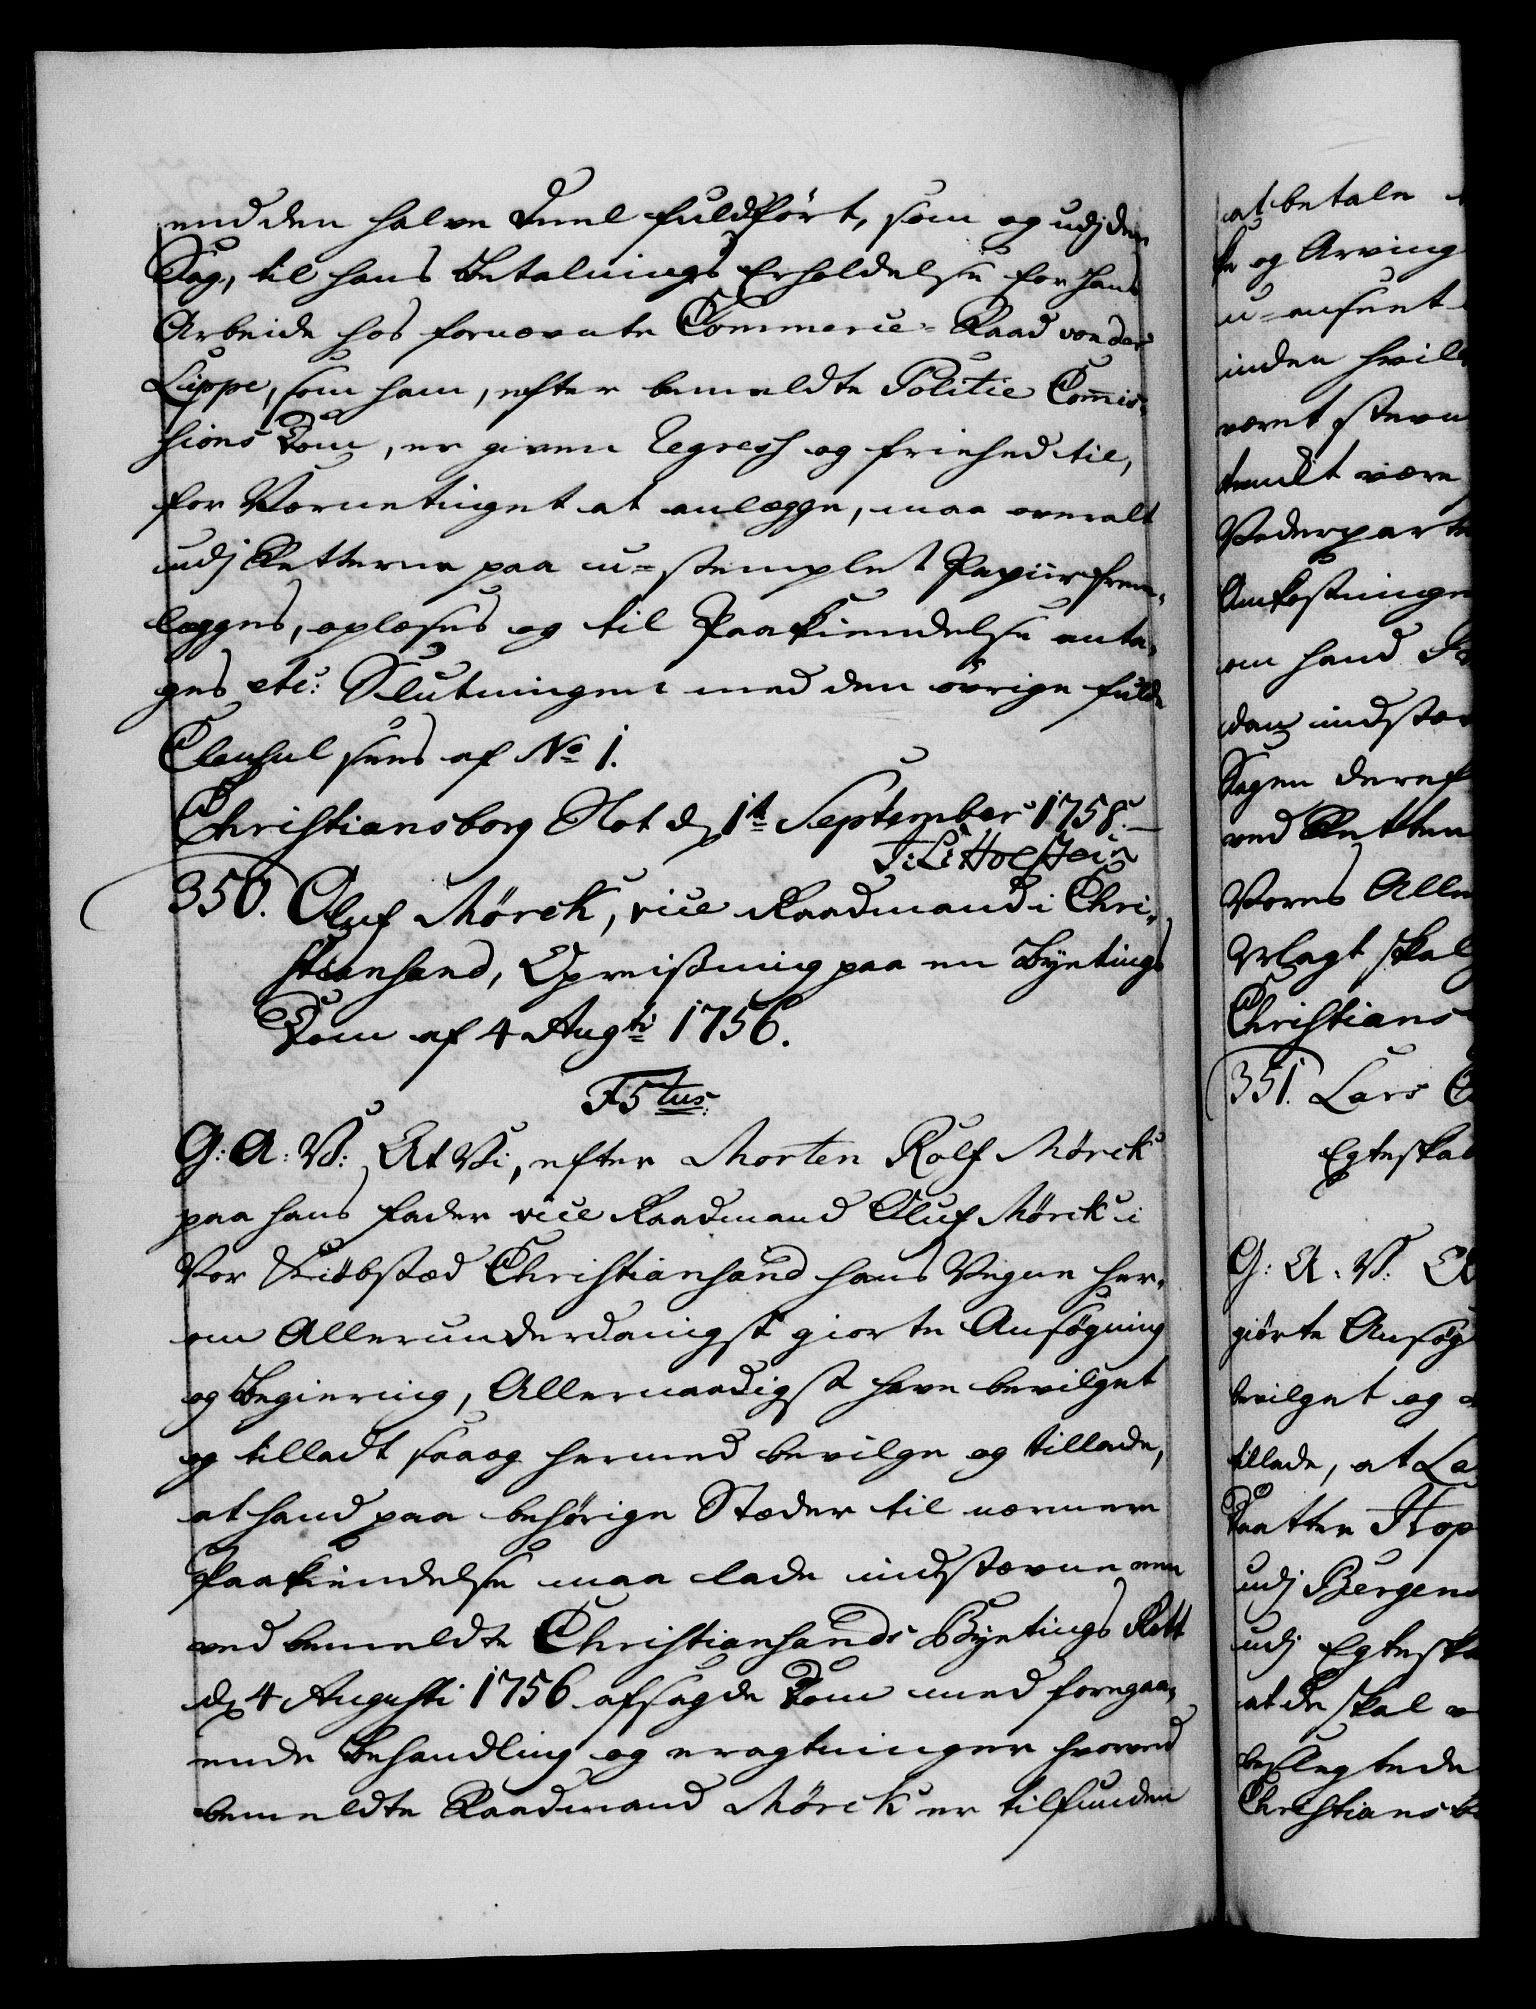 end den halve Deel fuldført, som og udj den
Sag, til hans Betalnings Erholdelse for hans
Arbeide hos fornevnte Commerce-Raad von der
Lippe, som ham, efter bemeldte Politie Commis-
sions Dom, er given Regress og friehed til,
for Borgetinget at anlegge, maa overalt
udj Retterne paa u-stemplet Papiir frem-
legges, oplæses og til Paakiendelse anta-
ges etc: Slutningen med den övrige fulde
Clausul sees af No 1.
Christiansborg Slot d 1te September 1758.
J: L: Holstein
350. Oluf Mørck, vice Raadmand i Chri-
stiansand, Opreisning paa en Byetings
Dom af 4 Augti 1756.
F5tus:
G: A: V: At Vi, efter Morten Rolf Mørck
paa hans Fader vice Raadmand Oluf Mørck i
Vor Kiöbstæd Christiansand hans Vegne her-
om Allerunderdanigst giorte Ansøgning
og Begiering, Allernaadigst have bevilget
og tilladt saa og hermed bevilge og tillade,
at hand paa behørige Stæder til nærmere
Paakiendelse maa lade indstævne een
ved bemeldte Christiansands Byetings Rett
d 4 Augusti 1756 afsagde Dom med foregaa-
ende Behandling og eragtninger hvorved
bemeldte Raadmand Mørck er tilfunden
at betale
og Arving
u-anseet
inden hvilk
været stevn
kendt være
Vederparte
Omkostninge
om hand
dom indstæv
Sagen deref
ved Retten
Vores Alle
erlagt skal
Christians
351. Lars
Egteskab
G: A: V:
giörte Ansøg
bevilget og
tillade, at La
Daatter
udj Bergens
udj Egteska
at de skal
beslegtede
Christiansb